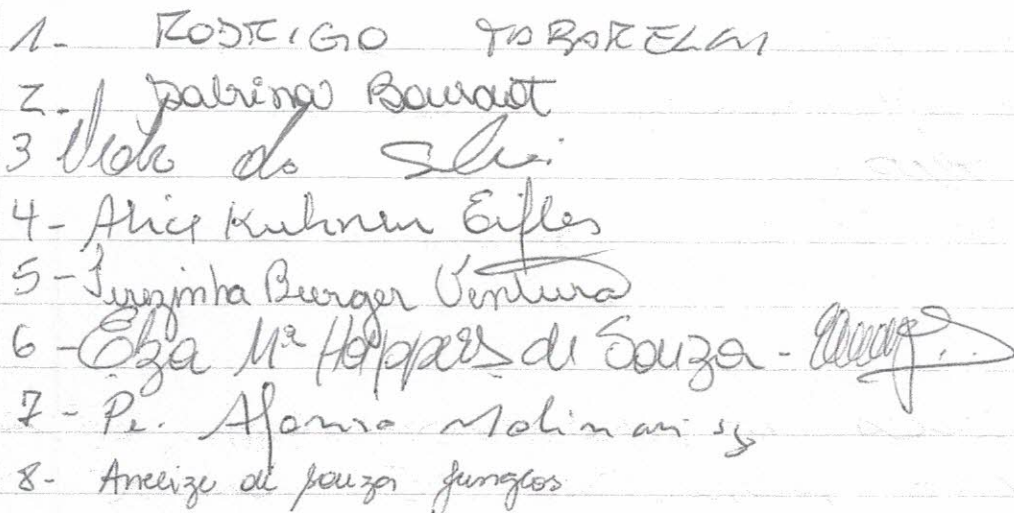 1- RODRIGO TABARELLI
2. Sabrina
3 da
4- Alice Kuhnen Eifler
5- Terezinha Burger Ventura
6- Elza Mª Happers de Souza -
7- Pe. Afonso Molinari sj
8- Aneeize de Souza